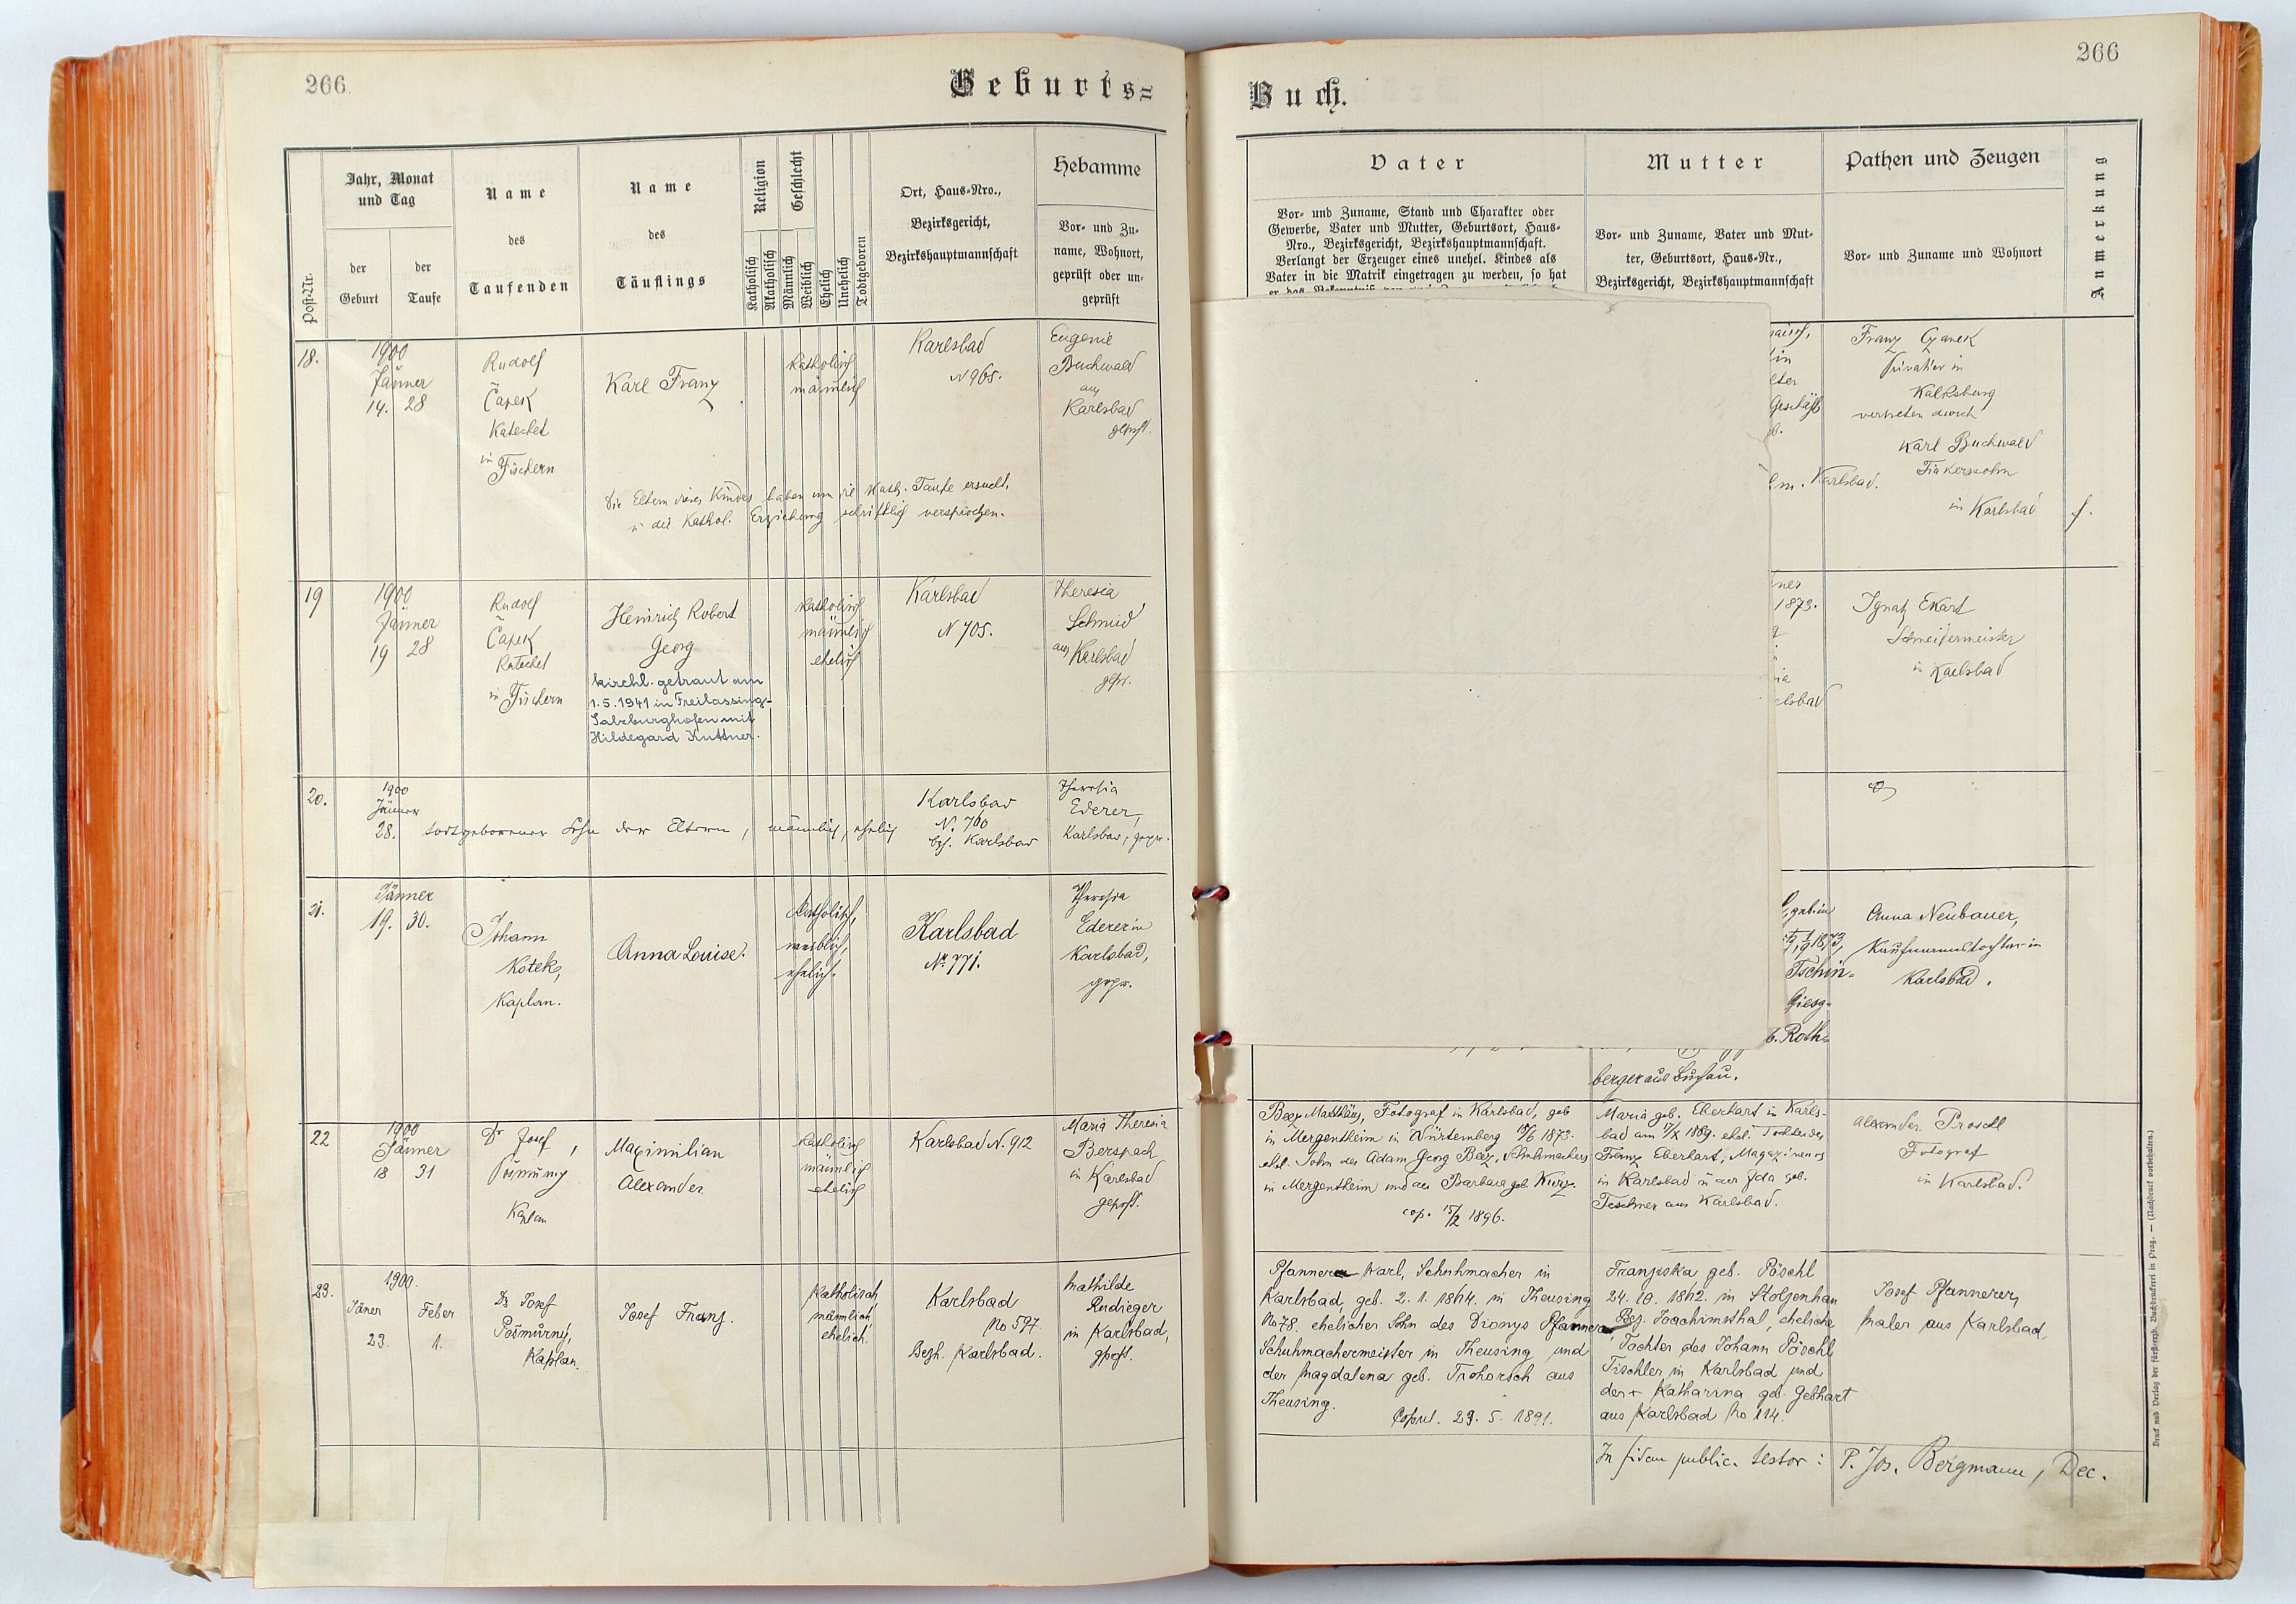 266.
Geburts=
Post-Nr.
Jahr, Monat
und Tag
der
Geburt
der
Taufe
Name
des
Taufenden
Name
des
Täuflings
Religion
Katholisch
Akatholisch
Geschlecht
Männlich
Weiblich
Ehelich
Unehelich
Todtgeboren
Ort, Haus=Nro.,
Bezirksgericht,
Bezirkshauptmannschaft
Hebamme
Vor= und Zu=
name, Wohnort,
geprüft oder un=
geprüft
18.
1900
Jänner
14. 28
Rudolf
Čapek
Katechet
in Fischern
Karl Franz
katholisch
männlich
Karlsbad
N 965.
Eugenie
Buchwald
aus
Karlsbad
geprft.
Die Eltern dieses Kindes haben um die kath. Taufe ersucht,
u die kathol. Erziehung schriftlich versprochen.
19
1900
Jänner
19 28
Rudolf
Čapek
Katechet
in Fischern
Heinrich Robert
Georg
kirchl. getraut am
1.5.1941 in Freilassing-
Salzburghofen mit
Hildegard Kuttner.
katholisch
männlich
ehelich
Karlsbad
N 705.
Theresia
Schmid
aus Karlsbad
gepr.
20.
1900
Jänner
28.
todtgeborener Sohn der Eltern, männlich, ehelich
Karlsbad
N. 760
bzh. Karlsbad
Theresia
Ederer,
Karlsbad, gepr.
21.
Jänner
19. 30.
Johann
Kotek,
Kaplan.
Anna Louise.
katholisch,
weiblich,
ehelich.
Karlsbad
Nr. 771.
Theresia
Ederer in
Karlsbad,
gepr.
22
1900
Jänner
18 31
Dr Josef
Pošmurny,
Kaplan
Maximilian
Alexander
katholisch
männlich
ehelich
Karlsbad N. 912
Maria Theresia
Berspach
in Karlsbad
geprft.
23.
1900.
Jäner Feber
23. 1.
Dr Josef
Pošmůrný,
Kaplan.
Josef Franz.
Katholisch
männlich
ehelich.
Karlsbad
No 597.
Bezh. Karlsbad.
Mathilde
Rudieger
in Karlsbad,
gprft.
266
Buch.
Vater
Vor= und Zuname, Stand und Charakter oder
Gewerbe, Vater und Mutter, Geburtsort, Haus=
Nro., Bezirksgericht, Bezirkshauptmannschaft.
Verlangt der Erzeuger eines unehel. Kindes als
Vater in die Matrik eingetragen zu werden, so hat
Mutter
Vor= und Zuname, Vater und Mut=
ter, Geburtsort, Haus=Nr.,
Bezirksgericht, Bezirkshauptmannschaft
Pathen und Zeugen
Vor= und Zuname und Wohnort
Anmerkung
Geschäft
Karlsbad.
Franz Czanek
Privatier in
Kalksburg
vertreten durch
Karl Buchwald
Fiakerssohn
in Karlsbad
f.
1873.
Ignatz Ekart
Schneidermeister
in Karlsbad
1873,
Tschin-
Giesg-
b. Roth-
berger aus Buchau.
Anna Neubauer,
Kaufmannstochter in
Karlsbad.
Beez Matthäus, Fotograf in Karlsbad, geb
in Mergentheim in Würtemberg 19/6 1873.
ehel. Sohn des Adam Georg Beez, Schuhmachers
in Mergentheim und der Barbara geb. Kurz.
cop. 15/2 1896.
Maria geb. Eberhart in Karls-
bad am 17/X 1869. ehel. Tochter des
Franz Eberhart, Magazineurs
in Karlsbad u der Ida geb.
Teschner aus Karlsbad.
Alexander Proschl
Fotograf
in Karlsbad.
Pfannerer Karl, Schuhmacher in
Karlsbad, geb. 2. 1. 1864. in Theusing
No 78. ehelicher Sohn des Dionys Pfannerer
Schuhmachermeister in Theusing und
der Magdalena geb. Trohorsch aus
Theusing.
Copul. 29. 5. 1891.
Franziska geb. Pöschl
24. 10. 1862. in Stolzenhan
Bez. Joachimsthal, eheliche
Tochter des Johann Pöschl
Tischler in Karlsbad und
der + Katharina geb. Gebhart
aus Karlsbad No 114.
Josef Pfannerer,
Maler aus Karlsbad.
In fidem public. testor: P. Jos. Bergmann, Dec.
Druck und Verlag der fürsterzb. Buchdruckerei in Prag. — (Nachdruck vorbehalten.)